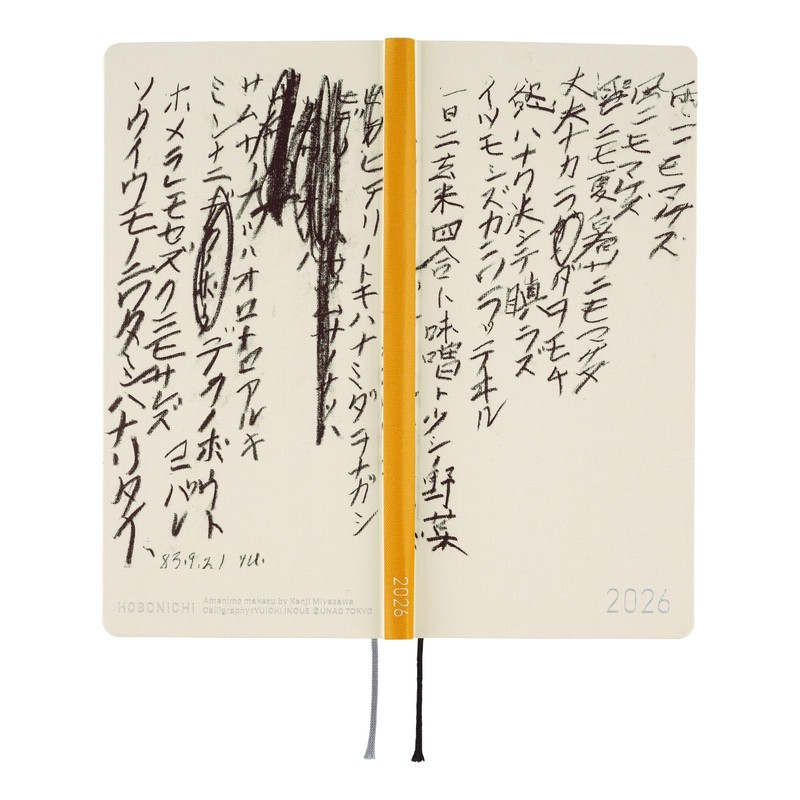 雨ニモマケズ
風ニモマケズ
雪ニモ夏ノ暑サニモマケヌ
丈夫ナカラダヲモチ
慾ハナク決シテ瞋ラズ
イツモシズカニワラッテヰル
一日ニ玄米四合ト味噌ト少シノ野菜
2026
2026
ヒデリノトキハナミダヲナガシ
サムサノナツハオロオロアルキ
ミンナニデクノボウト
ヨバレ
ホメラレモセズクニモサレズ
ソウイウモノニワタシハナリタイ
83.9.21 YU.
HOBONICHI
Amenimo makezu by Kenji Miyazawa
Calligraphy YUICHI INOUE ©UNAC TOKYO